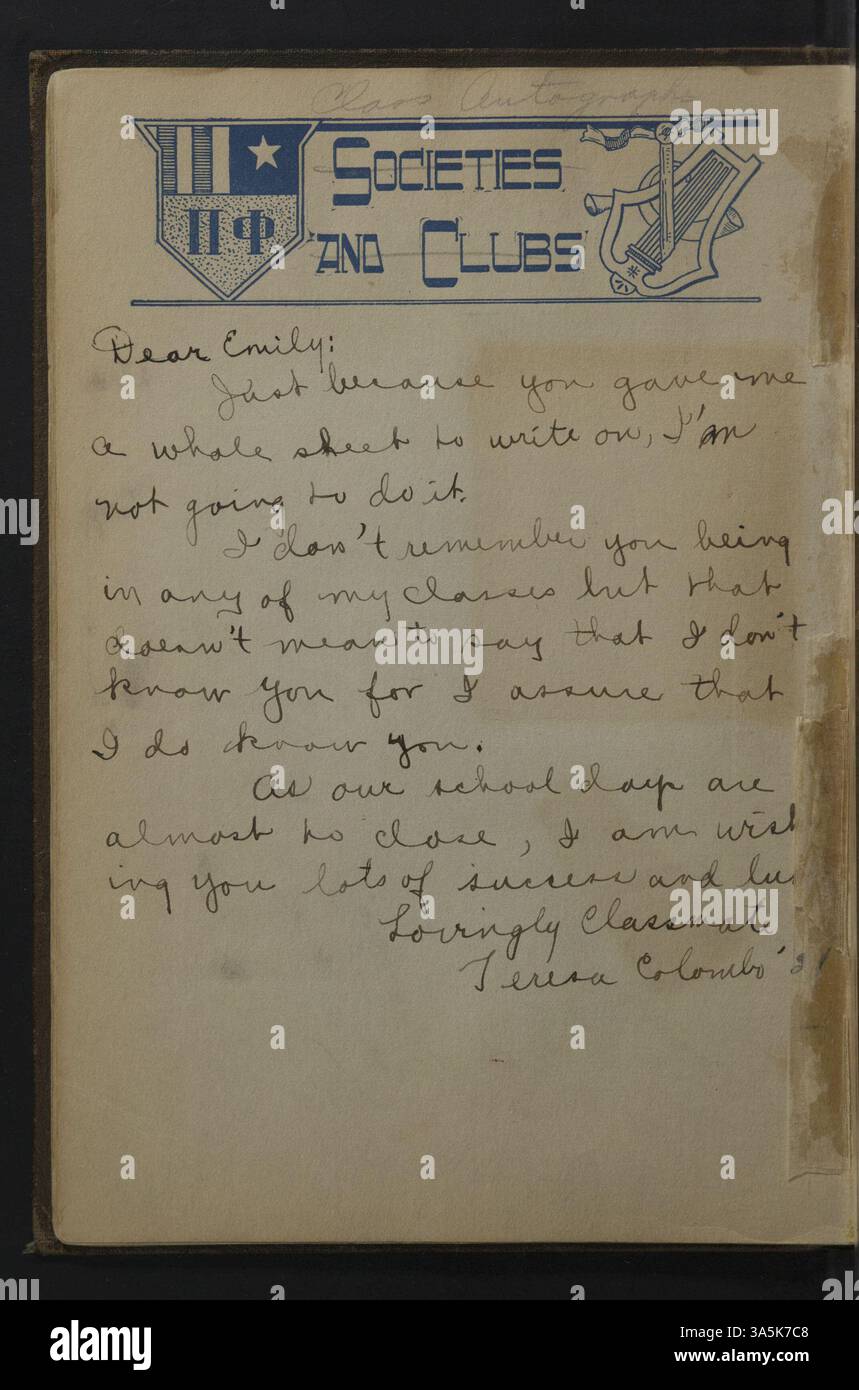 Class Autographs
SOCIETIES
AND CLUBS
ΠΦ
Dear Emily:
Just because you gave me
a whole sheet to write on, I'm
not going to do it.
I don't remember you being
in any of my classes but that
doesn't mean to say that I don't
know you for I assure that
I do know you.
As our school days are
almost to close, I am wish
ing you lots of success and lu
Lovingly Classmat
Teresa Colombo
alamy
www.alamy.com
3A5K7C8